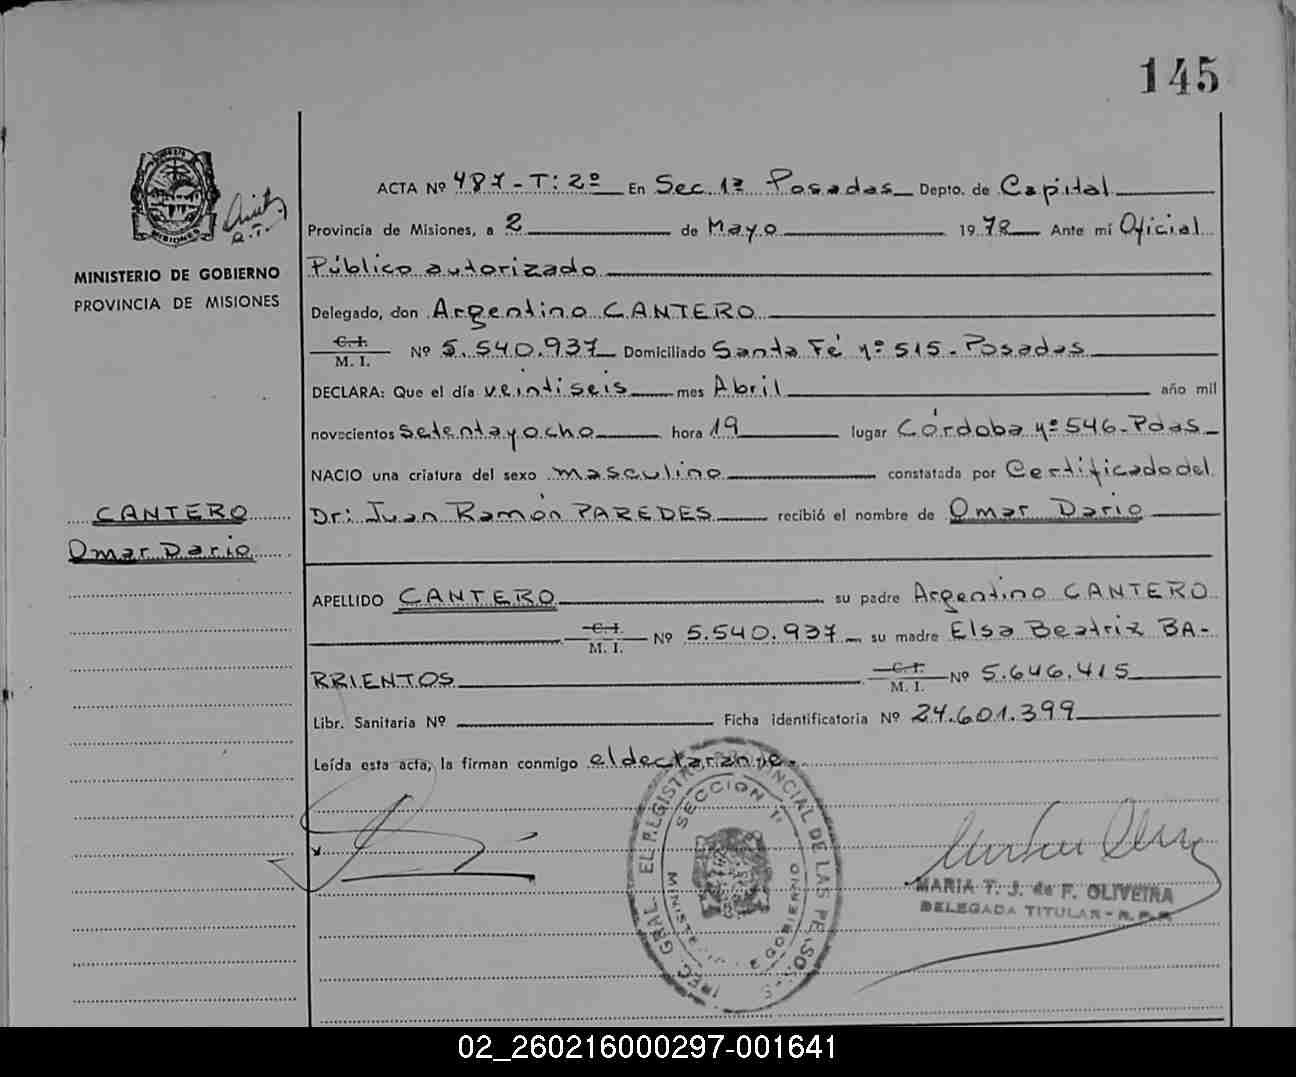 145
ACTA Nº 487-T: 2º En Sec. 1ª Posadas Depto. de Capital
Provincia de Misiones, a 2 de Mayo 1978 Ante mí Oficial
Público autorizado
MINISTERIO DE GOBIERNO
PROVINCIA DE MISIONES
Delegado, don Argentino CANTERO
C.I.
M. I. Nº 5.540.937 Domiciliado Santa Fé nº 515-Posadas
DECLARA: Que el día veintiseis mes Abril año mil
novecientos setentayocho hora 19 lugar Córdoba nº 546-Pdas
NACIO una criatura del sexo masculino constatada por Certificado del
CANTERO
Omar Dario
Dr: Juan Ramón PAREDES recibió el nombre de Omar Dario
APELLIDO CANTERO su padre Argentino CANTERO
C.I.
M. I. Nº 5.540.937 su madre Elsa Beatriz BA-
RRIENTOS C.I.
M. I. Nº 5.646.415
Libr. Sanitaria Nº Ficha identificatoria Nº 24.601.399
Leída esta acta, la firman conmigo el declarante.
SECCION 1ª
GRAL. DE LAS
GOBIERNO
MARIA T. J. de F. OLIVEIRA
DELEGADA TITULAR - R. P. P.
02_260216000297-001641